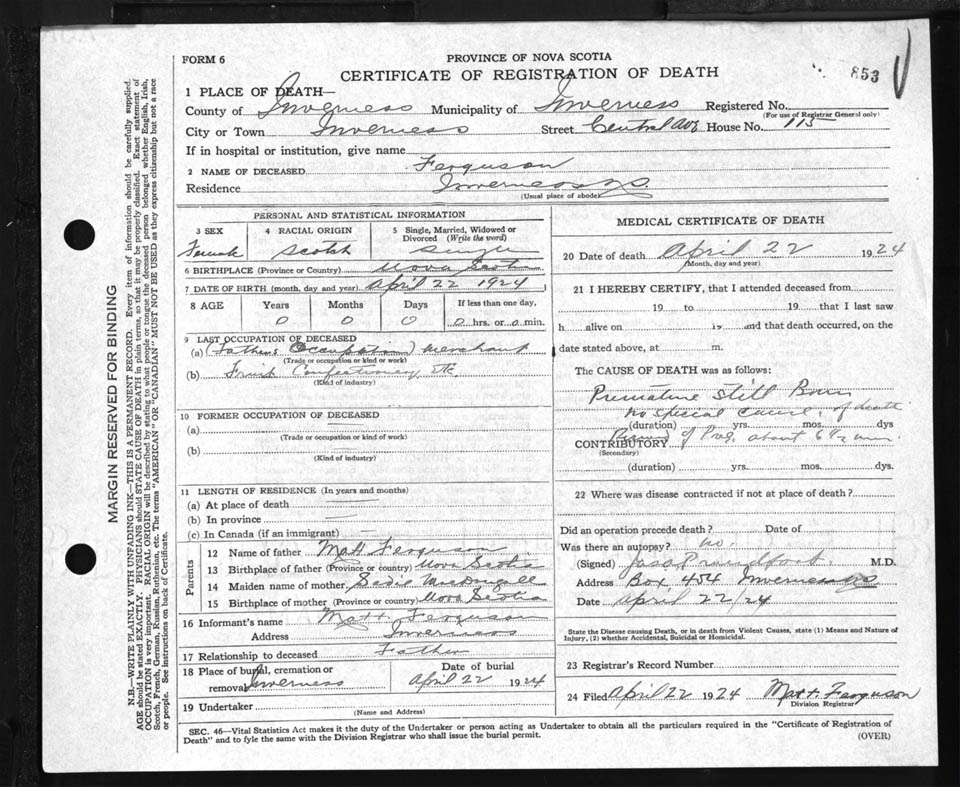 853
FORM 6
PROVINCE OF NOVA SCOTIA
CERTIFICATE OF REGISTRATION OF DEATH
1 PLACE OF DEATH—
County of Inverness Municipality of Inverness Registered No.
(For use of Registrar General only)
City or Town Inverness Street Central Ave House No. 115
If in hospital or institution, give name
2 NAME OF DECEASED Ferguson
Residence Inverness N.S.
(Usual place of abode)
PERSONAL AND STATISTICAL INFORMATION
3 SEX 4 RACIAL ORIGIN 5 Single, Married, Widowed or Divorced (Write the word)
Female Scotch Single
6 BIRTHPLACE (Province or Country) Nova Scotia
7 DATE OF BIRTH (month, day and year) April 22 1924
8 AGE Years Months Days If less than one day,
0 0 0 0 hrs. or 0 min.
9 LAST OCCUPATION OF DECEASED
(a) (Fathers Occupation) Merchant
(Trade or occupation or kind of work)
(b) Fruit Confectionery, Etc.
(Kind of industry)
10 FORMER OCCUPATION OF DECEASED
(a)
(Trade or occupation or kind of work)
(b)
(Kind of industry)
11 LENGTH OF RESIDENCE (In years and months)
(a) At place of death —
(b) In province —
(c) In Canada (if an immigrant) —
Parents
12 Name of father Matt Ferguson
13 Birthplace of father (Province or country) Nova Scotia
14 Maiden name of mother Sadie McDougall
15 Birthplace of mother (Province or country) Nova Scotia
16 Informant's name Matt. Ferguson
Address Inverness
17 Relationship to deceased Father
18 Place of burial, cremation or removal Inverness Date of burial April 22 1924
19 Undertaker
(Name and Address)
MEDICAL CERTIFICATE OF DEATH
20 Date of death April 22 1924
(Month, day and year)
21 I HEREBY CERTIFY, that I attended deceased from
19 to 19 that I last saw
h alive on 19 and that death occurred, on the
date stated above, at m.
The CAUSE OF DEATH was as follows:
Premature Still Born
no special cause, of death
(duration) yrs. mos. dys
CONTRIBUTORY of Preg. about 6½ mos.
(Secondary)
(duration) yrs. mos. dys.
22 Where was disease contracted if not at place of death?
Did an operation precede death? Date of
Was there an autopsy? no.
(Signed) M.D.
Address Box 454 Inverness N.S.
Date April 22/24
State the Disease causing Death, or in death from Violent Causes, state (1) Means and Nature of
Injury, (2) whether Accidental, Suicidal or Homicidal.
23 Registrar's Record Number
24 Filed April 22 1924 Matt. Ferguson
Division Registrar
SEC. 46—Vital Statistics Act makes it the duty of the Undertaker or person acting as Undertaker to obtain all the particulars required in the "Certificate of Registration of
Death" and to fyle the same with the Division Registrar who shall issue the burial permit.
(OVER)
MARGIN RESERVED FOR BINDING
N.B.—WRITE PLAINLY WITH UNFADING INK—THIS IS A PERMANENT RECORD. Every item of information should be carefully supplied.
AGE should be stated EXACTLY. PHYSICIANS should STATE CAUSE OF DEATH in plain terms, so that it may be properly classified. Exact statement of
OCCUPATION is very important. RACIAL ORIGIN will be described by stating to what people or tongue the deceased person belonged whether English, Irish,
Scotch, French, German, Russian, Ruthenian, etc. The terms "AMERICAN" OR "CANADIAN" MUST NOT BE USED as they express citizenship but not a race
or people. See instructions on back of Certificate.